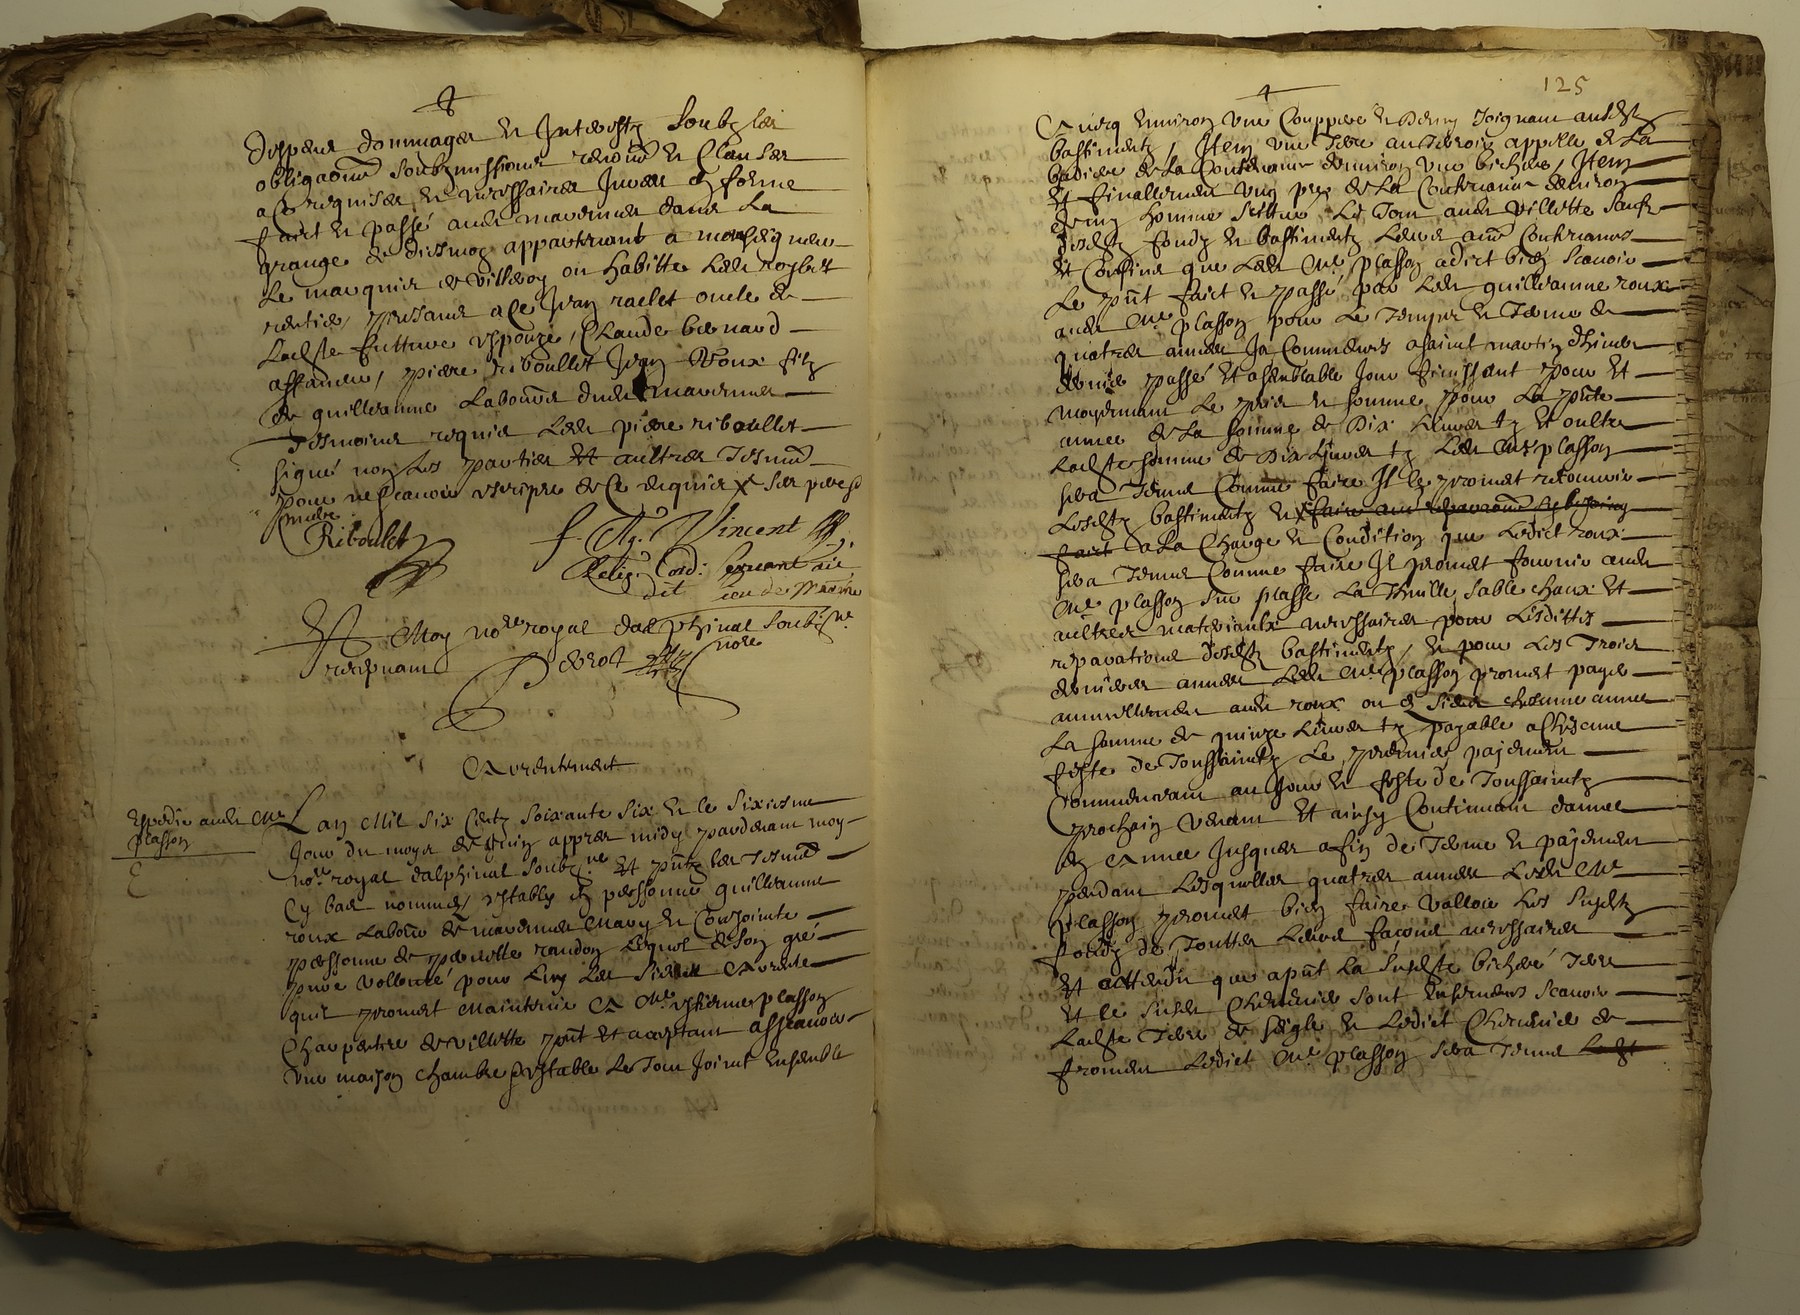 despens dommages et Interestz soubz les
obligaõns soubzmissions renõns et clauses
a ce requises et necessaires Jurées en forme
faict et passé audit marennes dans la
grange de dicsmog appartenant a monseigneur
Le marquis de villeroy ou habitte Ledit
rentier, presans a ce Jean raclet oncle de
Ladste future espouze, Claude bernard
affaneur, pierre riboullet Jean Roux filz
de guilleaume Laboureur dudit marennes
Tesmoins requis Ledit pierre riboullet
signé non Les parties et aultres Tesmoins
pour ne scavoir escripre de ce requis X ses pere et
mere
Riboulet
f. Aug. Vincent
Relig. Cord. servant
dit
Et Moy no.re royal dalphinal soubz.né
recepvant
Perrot nore
Arrentement
Expedie audit Me
plasson
Lan Mil six centz soixante six et le sixiesme
Jour du moys de Juin appres midy pardevant moy
no.re royal dalphinal soubz.né et pntz les Tesmoins
cy bas nommes, establys en personne guilleaume
roux Laboureur de marennes Mary et Conjointe
personne de pernette randon Lequel de son gré
pure vollonté pour Luy Les siens Arrente
quil promet Maintenir A Me estienne plasson
Charpentier de villette pnt et acceptant asscavoir
une maison chambre estable Le Tout Joint Ensemble
125
Avecq Environ une Couppeee et Demy Joignant ausdtz
bastimentz, Item une Terre au Terroir appelle de La
de La Contenance denviron une bicheree, Item
Et finallement ung pre de La Contenance denviron
demy homme scittué, Le Tout audit Villette sauf
desdtz fondz et bastimentz Leurs Contenances
Et Confins que Ledit Me plasson a dict bien scavoir
Le pnt faict et passé par Ledit guilleaume roux
audit Me plasson pour Le Temps et Terme de
quatres années Ja Commencés a saint martin dhiver
dernier passé Et a semblable Jour finissant pour Et
moyennant Le prix et somme, pour La pnte
annee de La somme de Dix Livres tz Et oultre
Ladste somme de Dix Livres tz Ledit Me plasson
sera Tenus Comme faire Il le promet recouvrir
Lesdtz bastimentz et
a La Charge et Condition que Ledict roux
sera Tenus Comme faire Il promet fournir audit
Me plasson sur plasse La Thuille, sable chaux Et
aultres materiaulx necessaires pour Lesdittes
reparations desdtz bastimentz, et pour Les Trois
dernieres annees Ledit Me plasson promet payer
annuellement audit roux ou es siens chascune annee
La somme de quinze Livres tz payable a Chascune
feste de Toussaintz Le premier payement
Commencant au Jour et feste de Toussaintz
prochain venant Et ainsy Continuant dannee
en Annee Jusques a fin de Terme et payement
pendant Lesquelles quatres annees Ledit Me
plasson promet bien faire valloir Les susdtz
fondz de Touttes Leurs facons necessaires
Et attendu que a pnt La susdste bicheré Terre
Et le susdit Chenevier sont Ensemences scavoir
Ladste Terre de seigle et Ledict Chenevier de
froment Ledict Me plasson sera Tenus